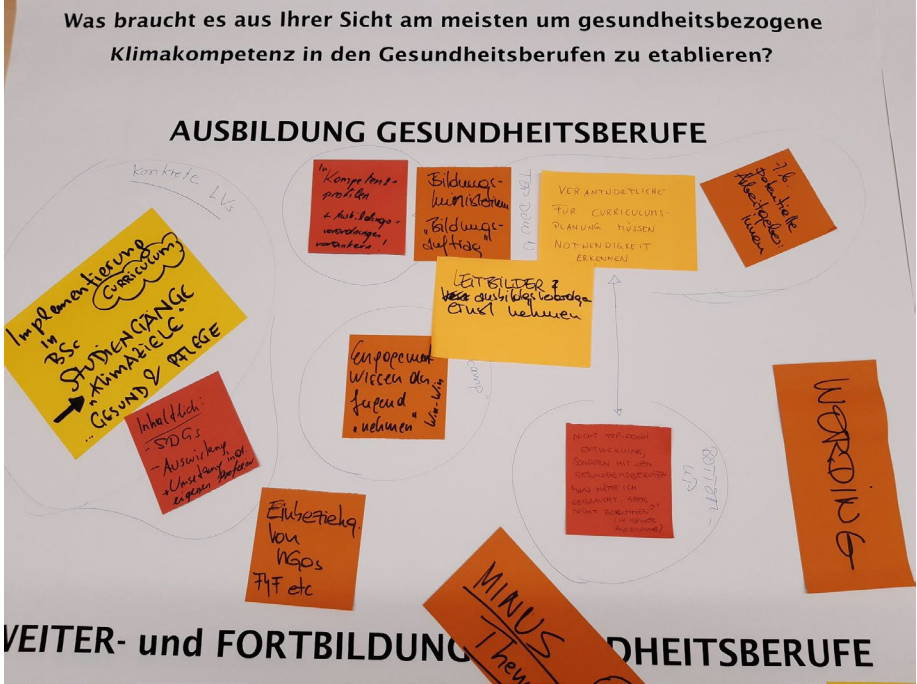 Was braucht es aus Ihrer Sicht am meisten um gesundheitsbezogene
Klimakompetenz in den Gesundheitsberufen zu etablieren?
AUSBILDUNG GESUNDHEITSBERUFE
konkrete LVs
Implementierung
in CURRICULUM
BSc
STUDIENGÄNGE
"KLIMAZIELE"
GESUND & PFLEGE
Inhaltlich:
- SDGs
- Auswirkung
+ Umsetzung in der
eigenen Profession
in Kompetenz-
profilen
+ Ausbildungs-
verordnungen
verankern!
Bildungs-
ministerium
"Bildungs-
auftrag"
TOP DOWN
VERANTWORTLICHE
FÜR CURRICULUMS-
PLANUNG MÜSSEN
NOTWENDIGKEIT
ERKENNEN
potentielle
Arbeitgeber:
innen
LEITBILDER
ernst nehmen
Engagement
Wissen der
Jugend
"nehmen"
Win-Win
BOTTOM-
UP
NICHT TOP-DOWN
ENTWICKLUNG,
SONDERN MIT DEN
GESUNDHEITSBERUFEN
NICHT
WORDING
Einbeziehg.
von
NGOs
FYF etc
MINUS
Them
WEITER- und FORTBILDUNG
DHEITSBERUFE